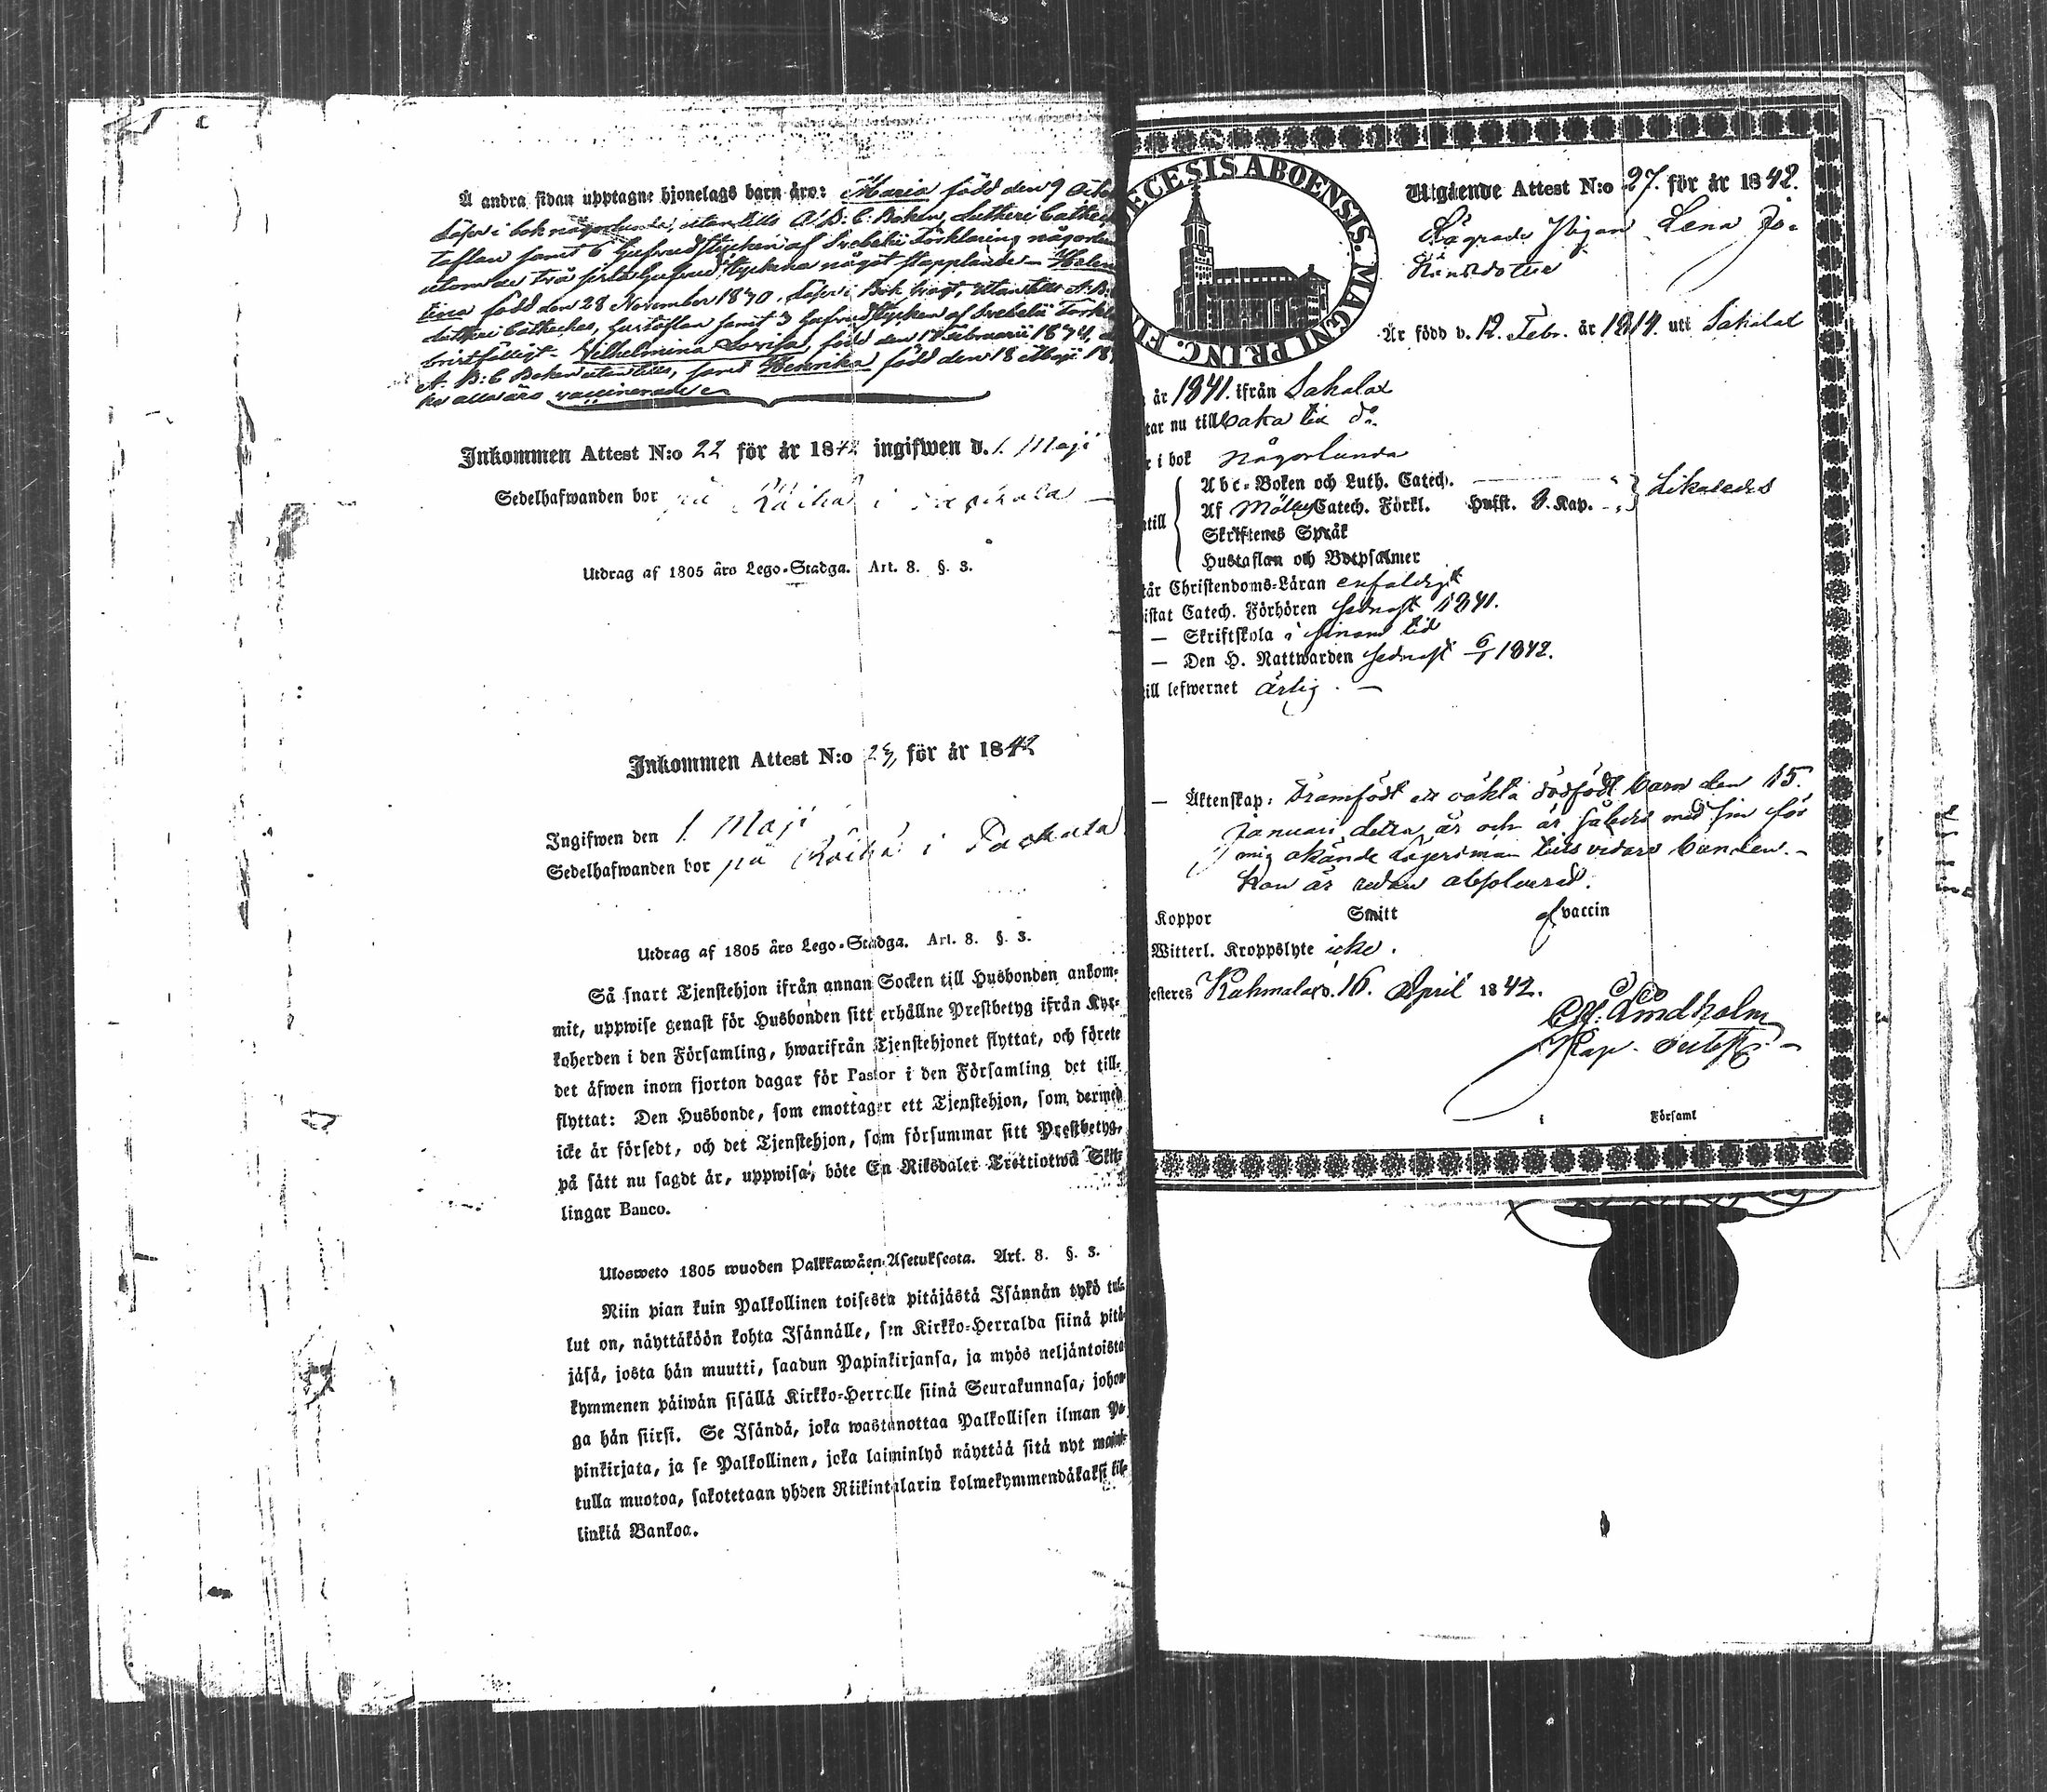 Å andra sidan upptagne hjonelags barn äro: Maria född den 9
Läser i bok någorlunda, utantills A.B.C. Boken, Lutheri
taflan samt 6 hufvudstycken af Svebelii Förklaring
utom de två första hufvudstyckena något stapplande –
tina född den 28 November 1830. Läser i Bok svagt, utantills A.B.
Lutheri Catheches, hustaflan samt 3 hufvudstycken af Svebelii
bristfälligt – Vilhelmina Lovisa född den 17 Februarii 1834,
A. B. C Boken utantills, samt Henrika född den 18 Maji 18
ka alla äro vaccinerade
Inkommen Attest N:o 22 för år 1842 ingifwen d. 1. Maji
Sedelhafwanden bor på i
Utdrag af 1805 års Lego-Stadga. Art. 8. §. 3.
Inkommen Attest N:o 23, för år 1842
Ingifwen den 1 Maji
Sedelhafwanden bor på i
Utdrag af 1805 års Lego-Stadga. Art. 8. §. 3.
Så snart Tjenstehjon ifrån annan Socken till Husbonden ankom-
mit, uppwise genast för Husbonden sitt erhållne Prestbetyg ifrån Kyr-
koherden i den Församling, hwarifrån Tjenstehjonet flyttat, och förete
det äfwen inom fjorton dagar för Pastor i den Församling det till-
flyttat: Den Husbonde, som emottager ett Tjenstehjon, som dermed
icke är försedt, och det Tjenstehjon, som försummar sitt Prestbetyg,
på sätt nu sagdt är, uppwisa, böte En Riksdaler Trettiotwå Skil-
lingar Banco.
Ulosweto 1805 wuoden Palkkawäen-Asetuksesta. Art. 8. §. 3.
Niin pian kuin Palkollinen toisesta pitäjästä Isännän tykö tul-
lut on, näyttäköön kohta Isännälle, sen Kirkko-Herralda siinä pitä-
jäsä, josta hän muutti, saadun Papinkirjansa, ja myös neljäntoista-
kymmenen päiwän sisällä Kirkko-Herralle siinä Seurakunnasa, johon-
ga hän siirsi. Se Isändä, joka wastanottaa Palkollisen ilman Pa-
pinkirjata, ja se Palkollinen, joka laiminlyö näyttää sitä nyt mainit-
tulla muotoa, sakotetaan yhden Riikintalarin kolmekymmendäkaksi kil-
linkiä Bankoa.
ECESIS ABOENSIS. MAGNI PRINC. FI
Utgående Attest N:o 27. för år 1842.
Lägrade Pigan Lena Jo-
hansdotter
Är född d. 12. Febr. är 1814. uti Sakalax
år 1841. ifrån Sakalax
tar nu tillbaka till do.
i bok någorlunda
Abc-Boken och Luth. Catech.
Af Catech. Förkl. Hufst. 3. Kap.
Likaledes
ntill
Skriftenes Språk
Hustaflan och Botpsalmer
tår Christendoms-Läran enfaldigt
istat Catech. Förhören sednast 1841.
— Skriftskola i sinom tid
— Den H. Nattwarden sednast 6/1 1842.
ill lefwernet ärlig. —
— Äktenskap: Framfödt ett oäkta dödfödt barn den 15.
Januari detta år och är således med sin för
mig okände lägersman tills vidare bunden. –
Hon är redan absolverad.
Koppor Smitt af vaccin
Witterl. Kroppslyte icke.
esteres d. 16. April 1842.
Lindholm
Kap.
i Församl